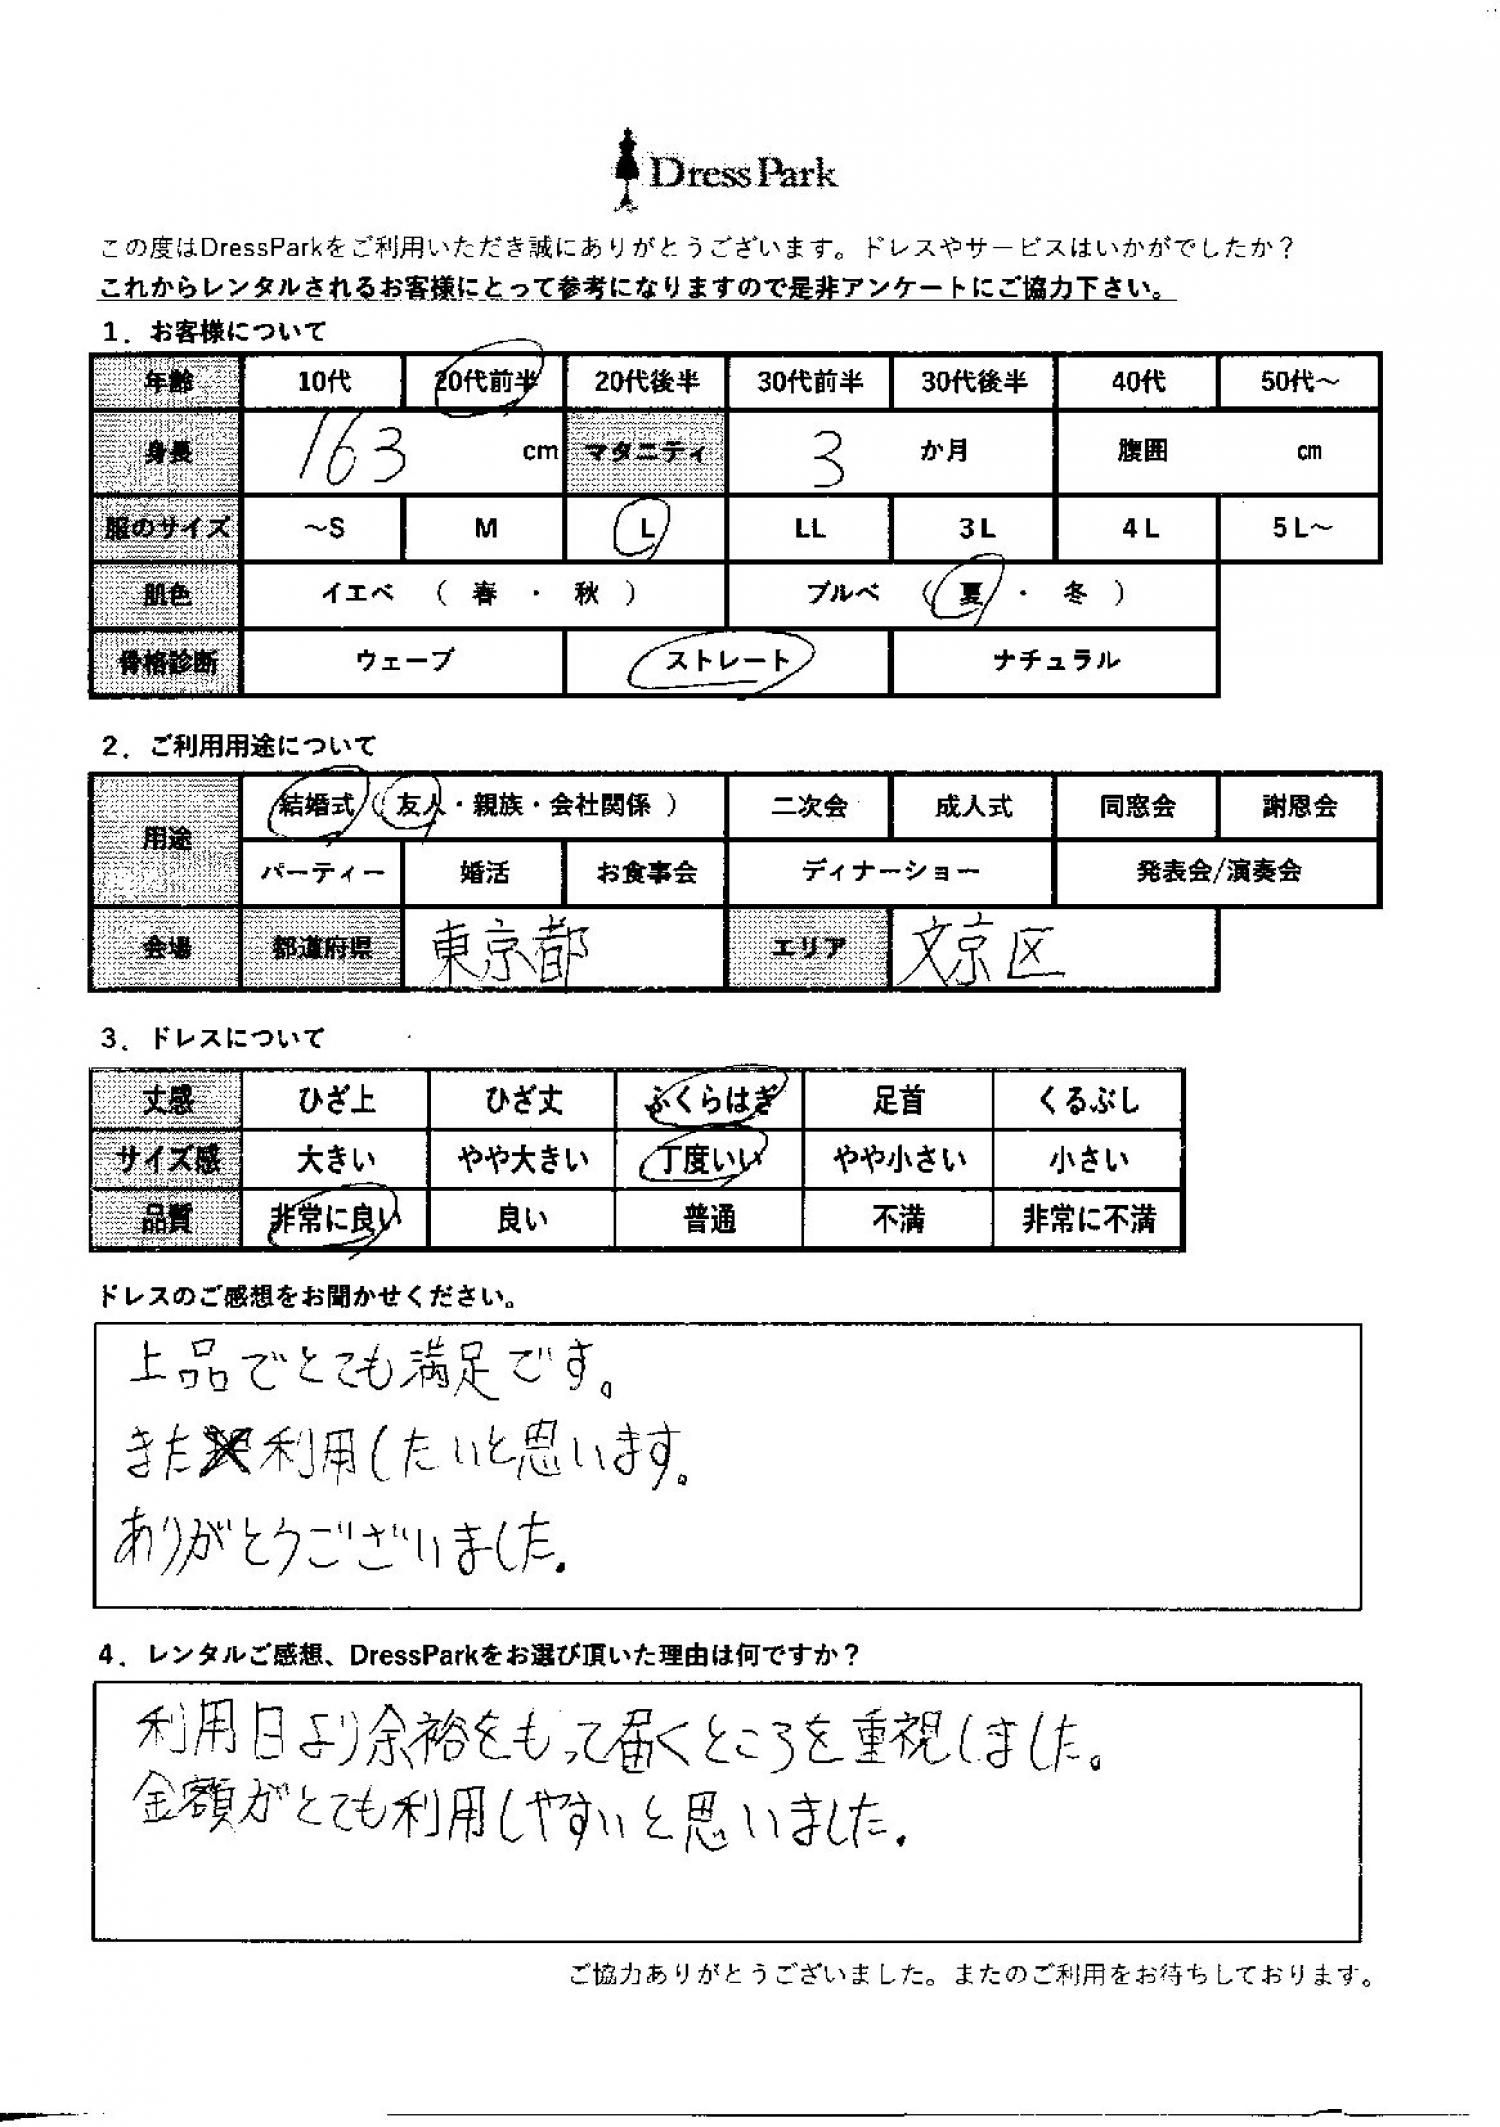 DressPark
この度はDressParkをご利用いただき誠にありがとうございます。ドレスやサービスはいかがでしたか？
これからレンタルされるお客様にとって参考になりますので是非アンケートにご協力下さい。
1．お客様について
年齢 10代 20代前半 20代後半 30代前半 30代後半 40代 50代～
身長 163 cm マタニティ 3 か月 腹囲 cm
服のサイズ ～S M L LL 3L 4L 5L～
肌色 イエベ （ 春 ・ 秋 ） ブルベ （ 夏 ・ 冬 ）
骨格診断 ウェーブ ストレート ナチュラル
2．ご利用用途について
用途 結婚式（ 友人・親族・会社関係 ） 二次会 成人式 同窓会 謝恩会
パーティー 婚活 お食事会 ディナーショー 発表会/演奏会
会場 都道府県 東京都 エリア 文京区
3．ドレスについて
丈感 ひざ上 ひざ丈 ふくらはぎ 足首 くるぶし
サイズ感 大きい やや大きい 丁度いい やや小さい 小さい
品質 非常に良い 良い 普通 不満 非常に不満
ドレスのご感想をお聞かせください。
上品でとても満足です。
また利用したいと思います。
ありがとうございました.
4．レンタルご感想、DressParkをお選び頂いた理由は何ですか？
利用日より余裕をもって届くところを重視しました。
金額がとても利用しやすいと思いました.
ご協力ありがとうございました。またのご利用をお待ちしております。